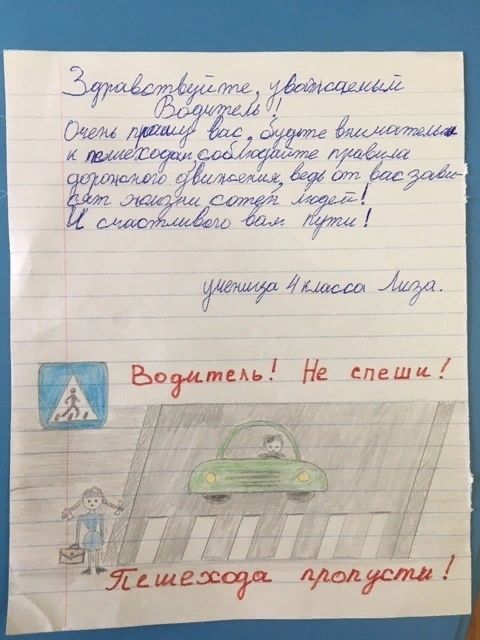 Здравствуйте, уважаемый
Водитель!
Очень прошу вас, будьте внимательн
к пешеходам, соблюдайте правила
дорожного движения, ведь от вас зави-
сят жизни сотен людей!
И счастливого вам пути!
ученица 4 класса Лиза.
Водитель! Не спеши!
Пешехода пропусти!